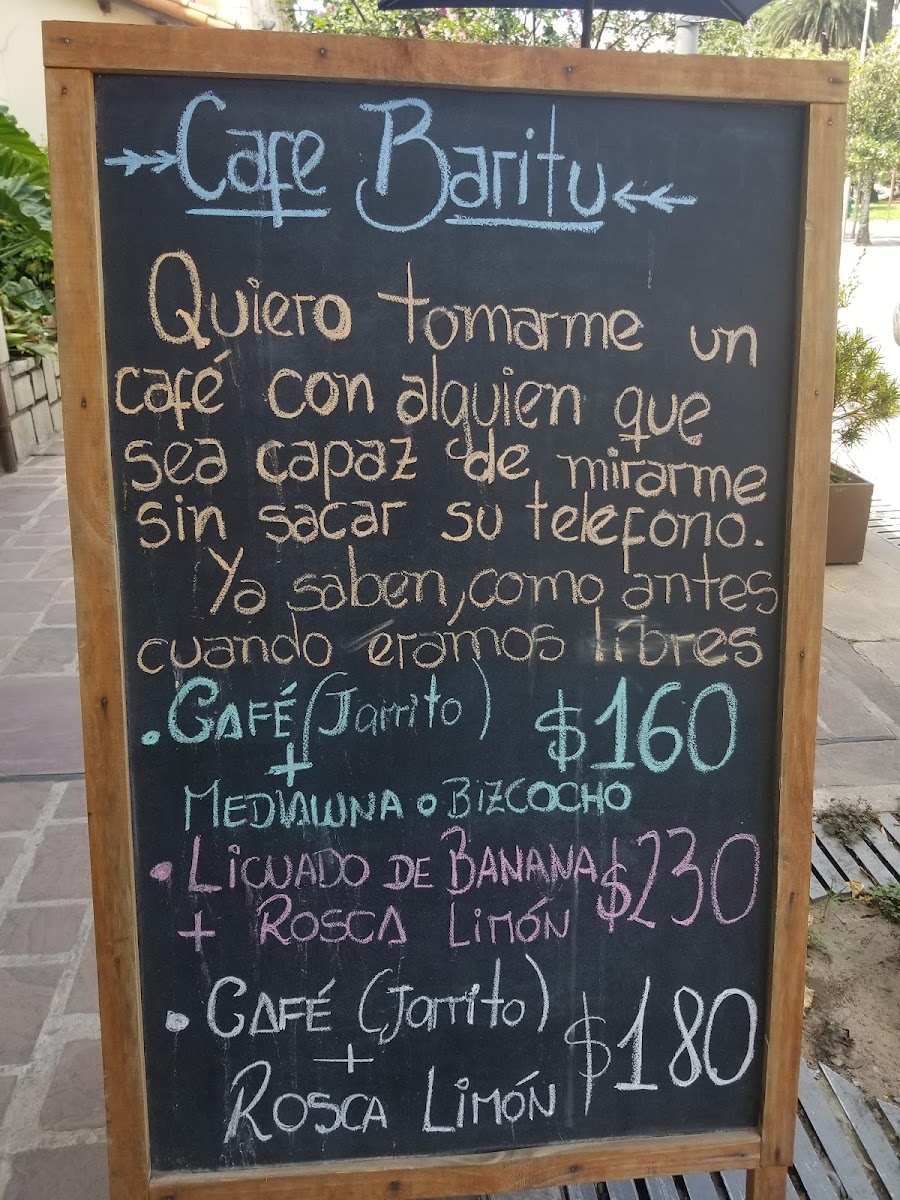 Cafe Baritu
Quiero tomarme un
café con alguien que
sea capaz de mirarme
sin sacar su telefono.
Ya saben, como antes
cuando eramos libres
• CAFÉ (Jarrito) $160
+
MEDIALUNA o BIZCOCHO
• LICUADO DE BANANA $230
+ ROSCA LIMÓN
• CAFÉ (Jarrito) $180
+
ROSCA LIMÓN